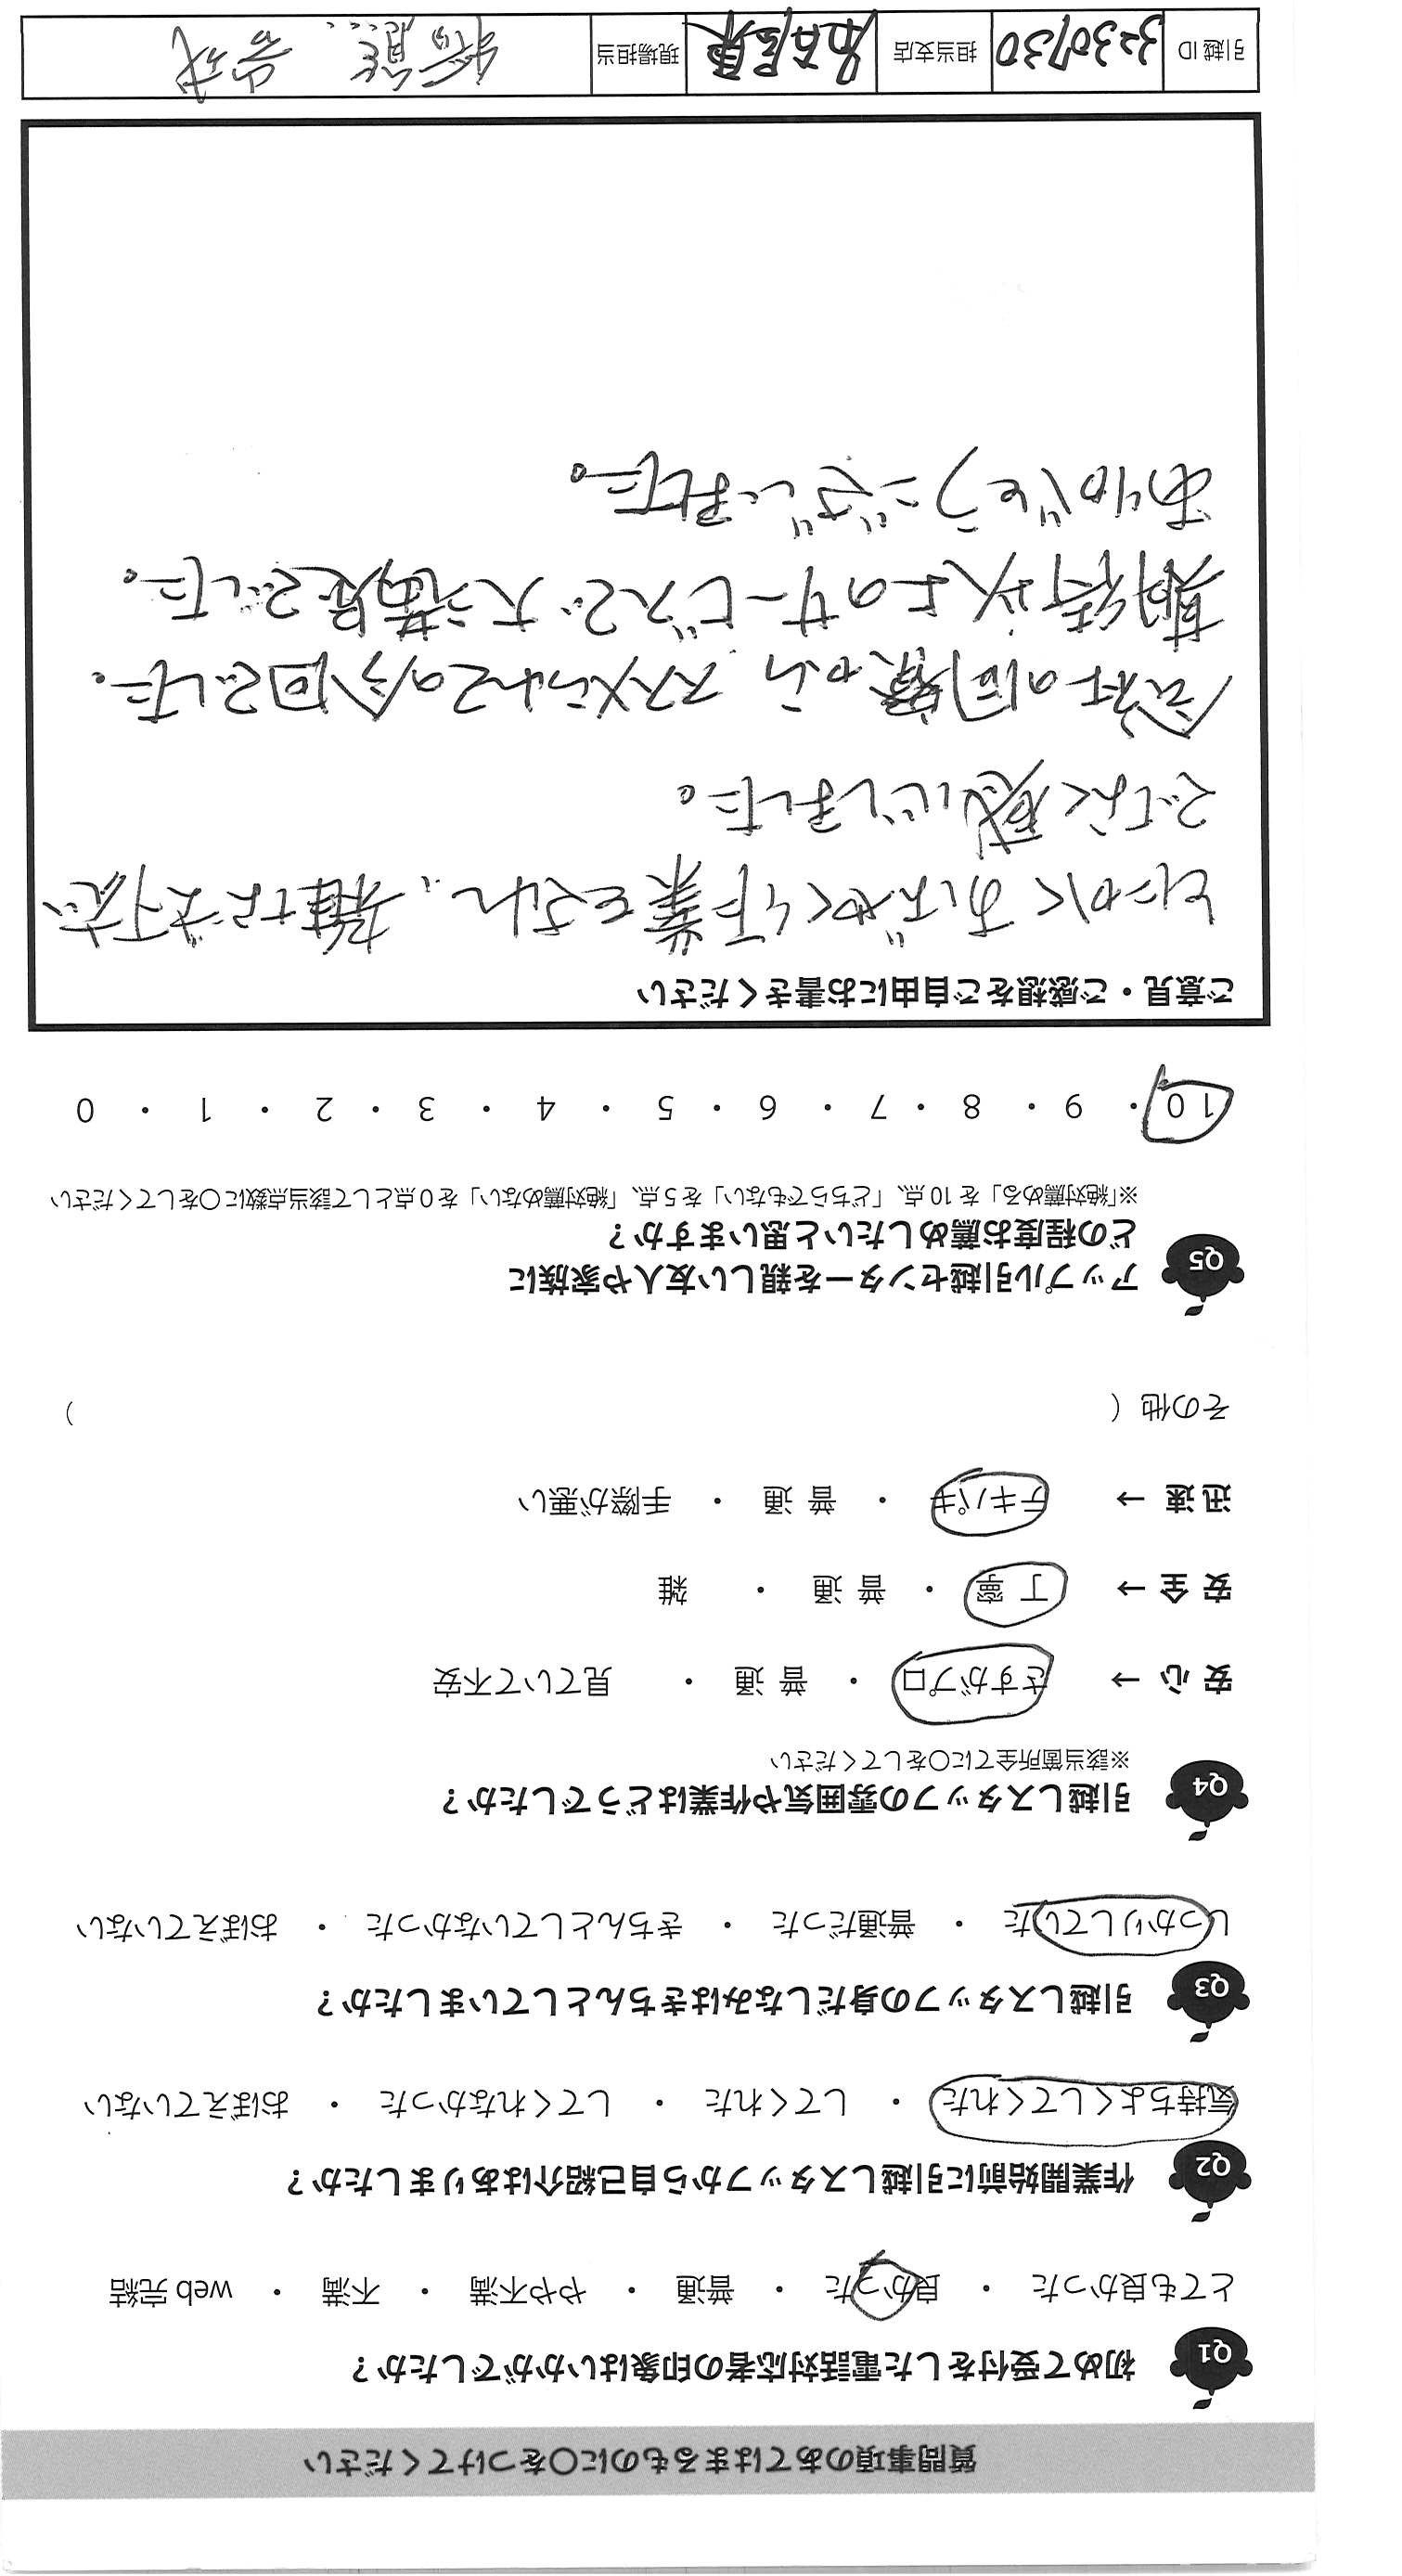 質問事項のあてはまるものに〇をつけてください
Q1 初めて受付をした電話対応者の印象はいかがでしたか？
とても良かった ・ 良かった ・ 普通 ・ やや不満 ・ 不満 ・ web 完結
Q2 作業開始前に引越しスタッフから自己紹介はありましたか？
気持ちよくしてくれた ・ してくれた ・ してくれなかった ・ おぼえていない
Q3 引越しスタッフの身だしなみはきちんとしていましたか？
しっかりしていた ・ 普通だった ・ きちんとしていなかった ・ おぼえていない
Q4 引越しスタッフの雰囲気や作業はどうでしたか？
※該当箇所全てに〇をしてください
安 心 → さすがプロ ・ 普 通 ・ 見ていて不安
安 全 → 丁 寧 ・ 普 通 ・ 雑
迅 速 → テキパキ ・ 普 通 ・ 手際が悪い
その他（ ）
Q5 アップル引越センターを親しい友人や家族に
どの程度お薦めしたいと思いますか？
※「絶対薦める」を 10 点、「どちらでもない」を 5 点、「絶対薦めない」を 0 点として該当点数に〇をしてください
10 ・ 9 ・ 8 ・ 7 ・ 6 ・ 5 ・ 4 ・ 3 ・ 2 ・ 1 ・ 0
ご意見・ご感想をご自由にお書きください
とにかくすばやく作業をされ、雑な
でなく感心しました。
会社の同僚から ススメられての今回でした。
期待以上のサービスで 大満足でした。
ありがとうございました。
引越 ID 3230730 担当支店 名古屋東 現場担当